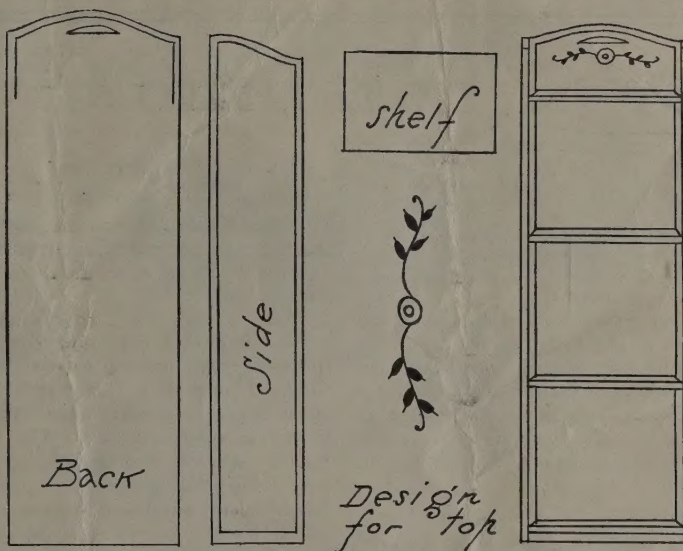 Back
Side
shelf
Design
for top